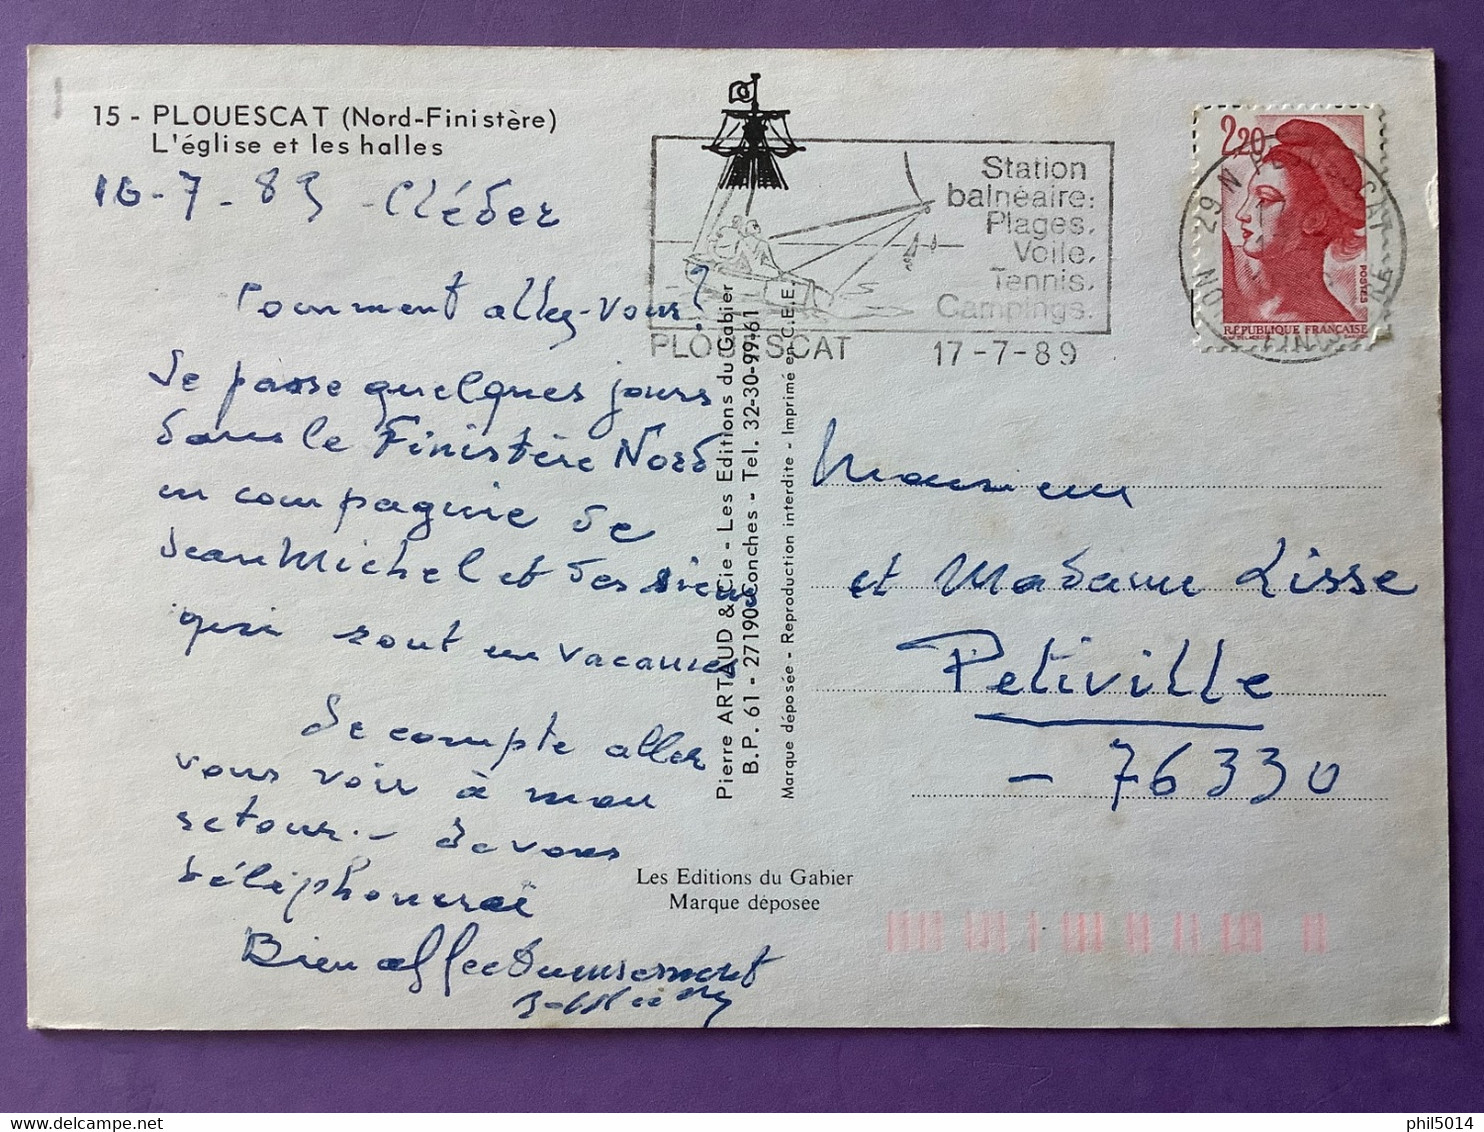 15 - PLOUESCAT (Nord-Finistère)
L'église et les halles
16-7-89 - Cléder
Comment allez-vous?
Je passe quelques jours
dans le Finistère Nord
en compagnie de
Jean Michel et des siens
qui sont en vacances
Je compte aller
vous voir à mon
retour. - Je vous
téléphonerai
Bien affectueusement
Station
balnéaire:
Plages,
Voile,
Tennis,
Campings.
PLOUESCAT 17-7-89
2,20
POSTES
RÉPUBLIQUE FRANÇAISE
29 N PLOUESCAT
Pierre ARTAUD & Cie - Les Editions du Gabier
B.P. 61 - 27190 Conches - Tel. 32-30-99-61
Marque déposée - Reproduction interdite - Imprimé en C.E.E.
Monsieur
et Madame Lisse
Petiville
- 76330
Les Editions du Gabier
Marque déposée
phil5014